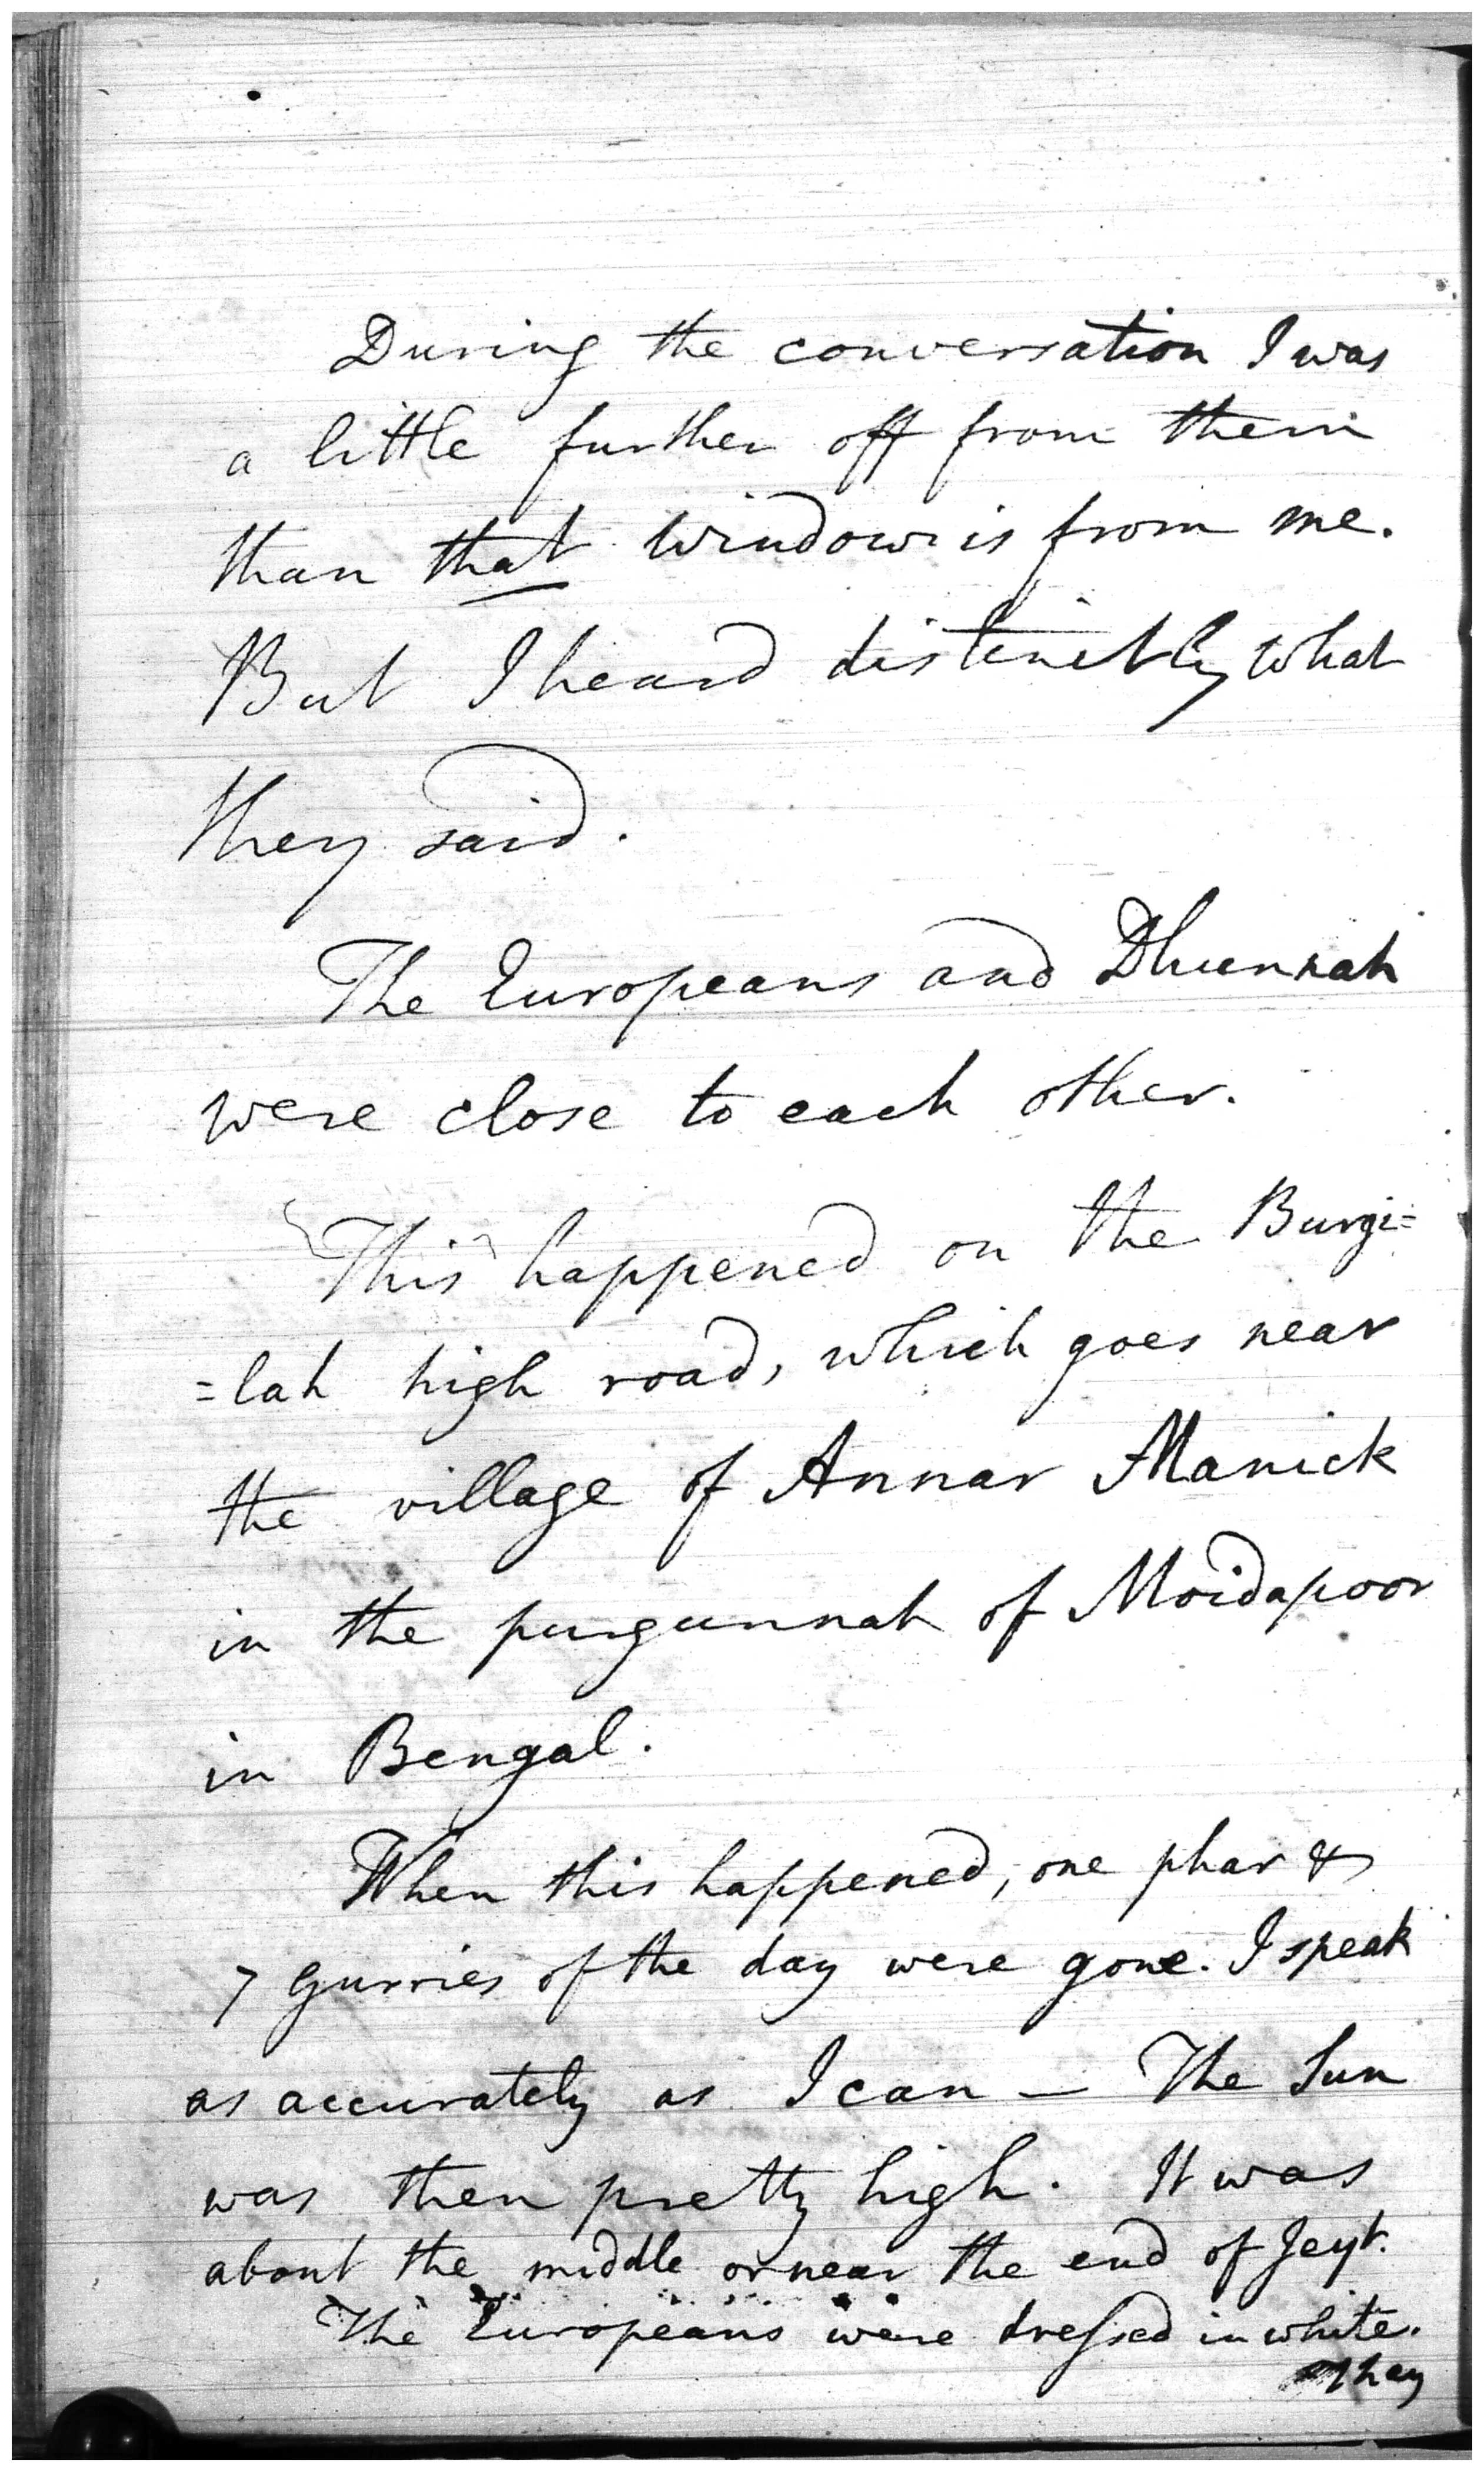 During the conversation I was
a little further off from them
than that window is from me.
But I heard distinctly what
they said.
The Europeans and Dhunnah
were close to each other.
This happened on the Burgi=
=lah high road, which goes near
the village of Annar Manick
in the purgunnah of Moidapoor
in Bengal.
When this happened, one phar &
7 gurries of the day were gone. I speak
as accurately as I can — The Sun
was then pretty high. It was
about the middle or near the end of Jeyt.
The Europeans were dressed in white.
They